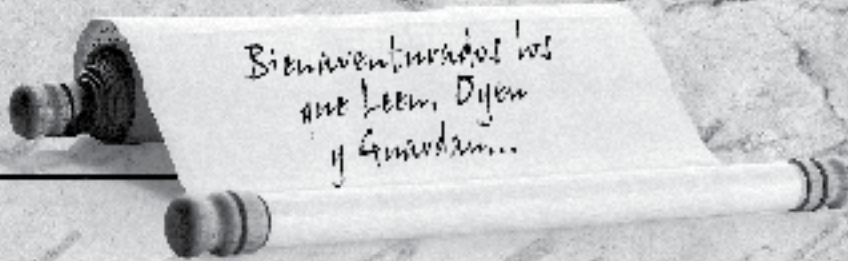 Bienaventurados los
que Leen, Oyen
y Guardan...